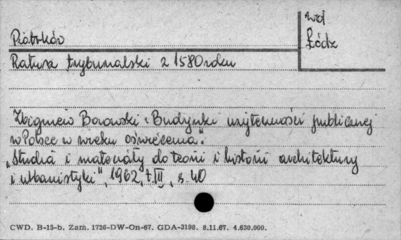 Piotrków
wd
Łódz
Ratusz trybunalski z 1580 roku
Zbigniew Borowski: Budynki użyteczności publicznej
w Polsce w wieku oświecenia".
„Studia i materiały do teorii i historii architektury
i urbanistyki", 1962, t. III, s. 40
CWD. B-15-b. Zam. 1726-DW-On-67. GDA-3198. 8.11.67. 4.630.000.